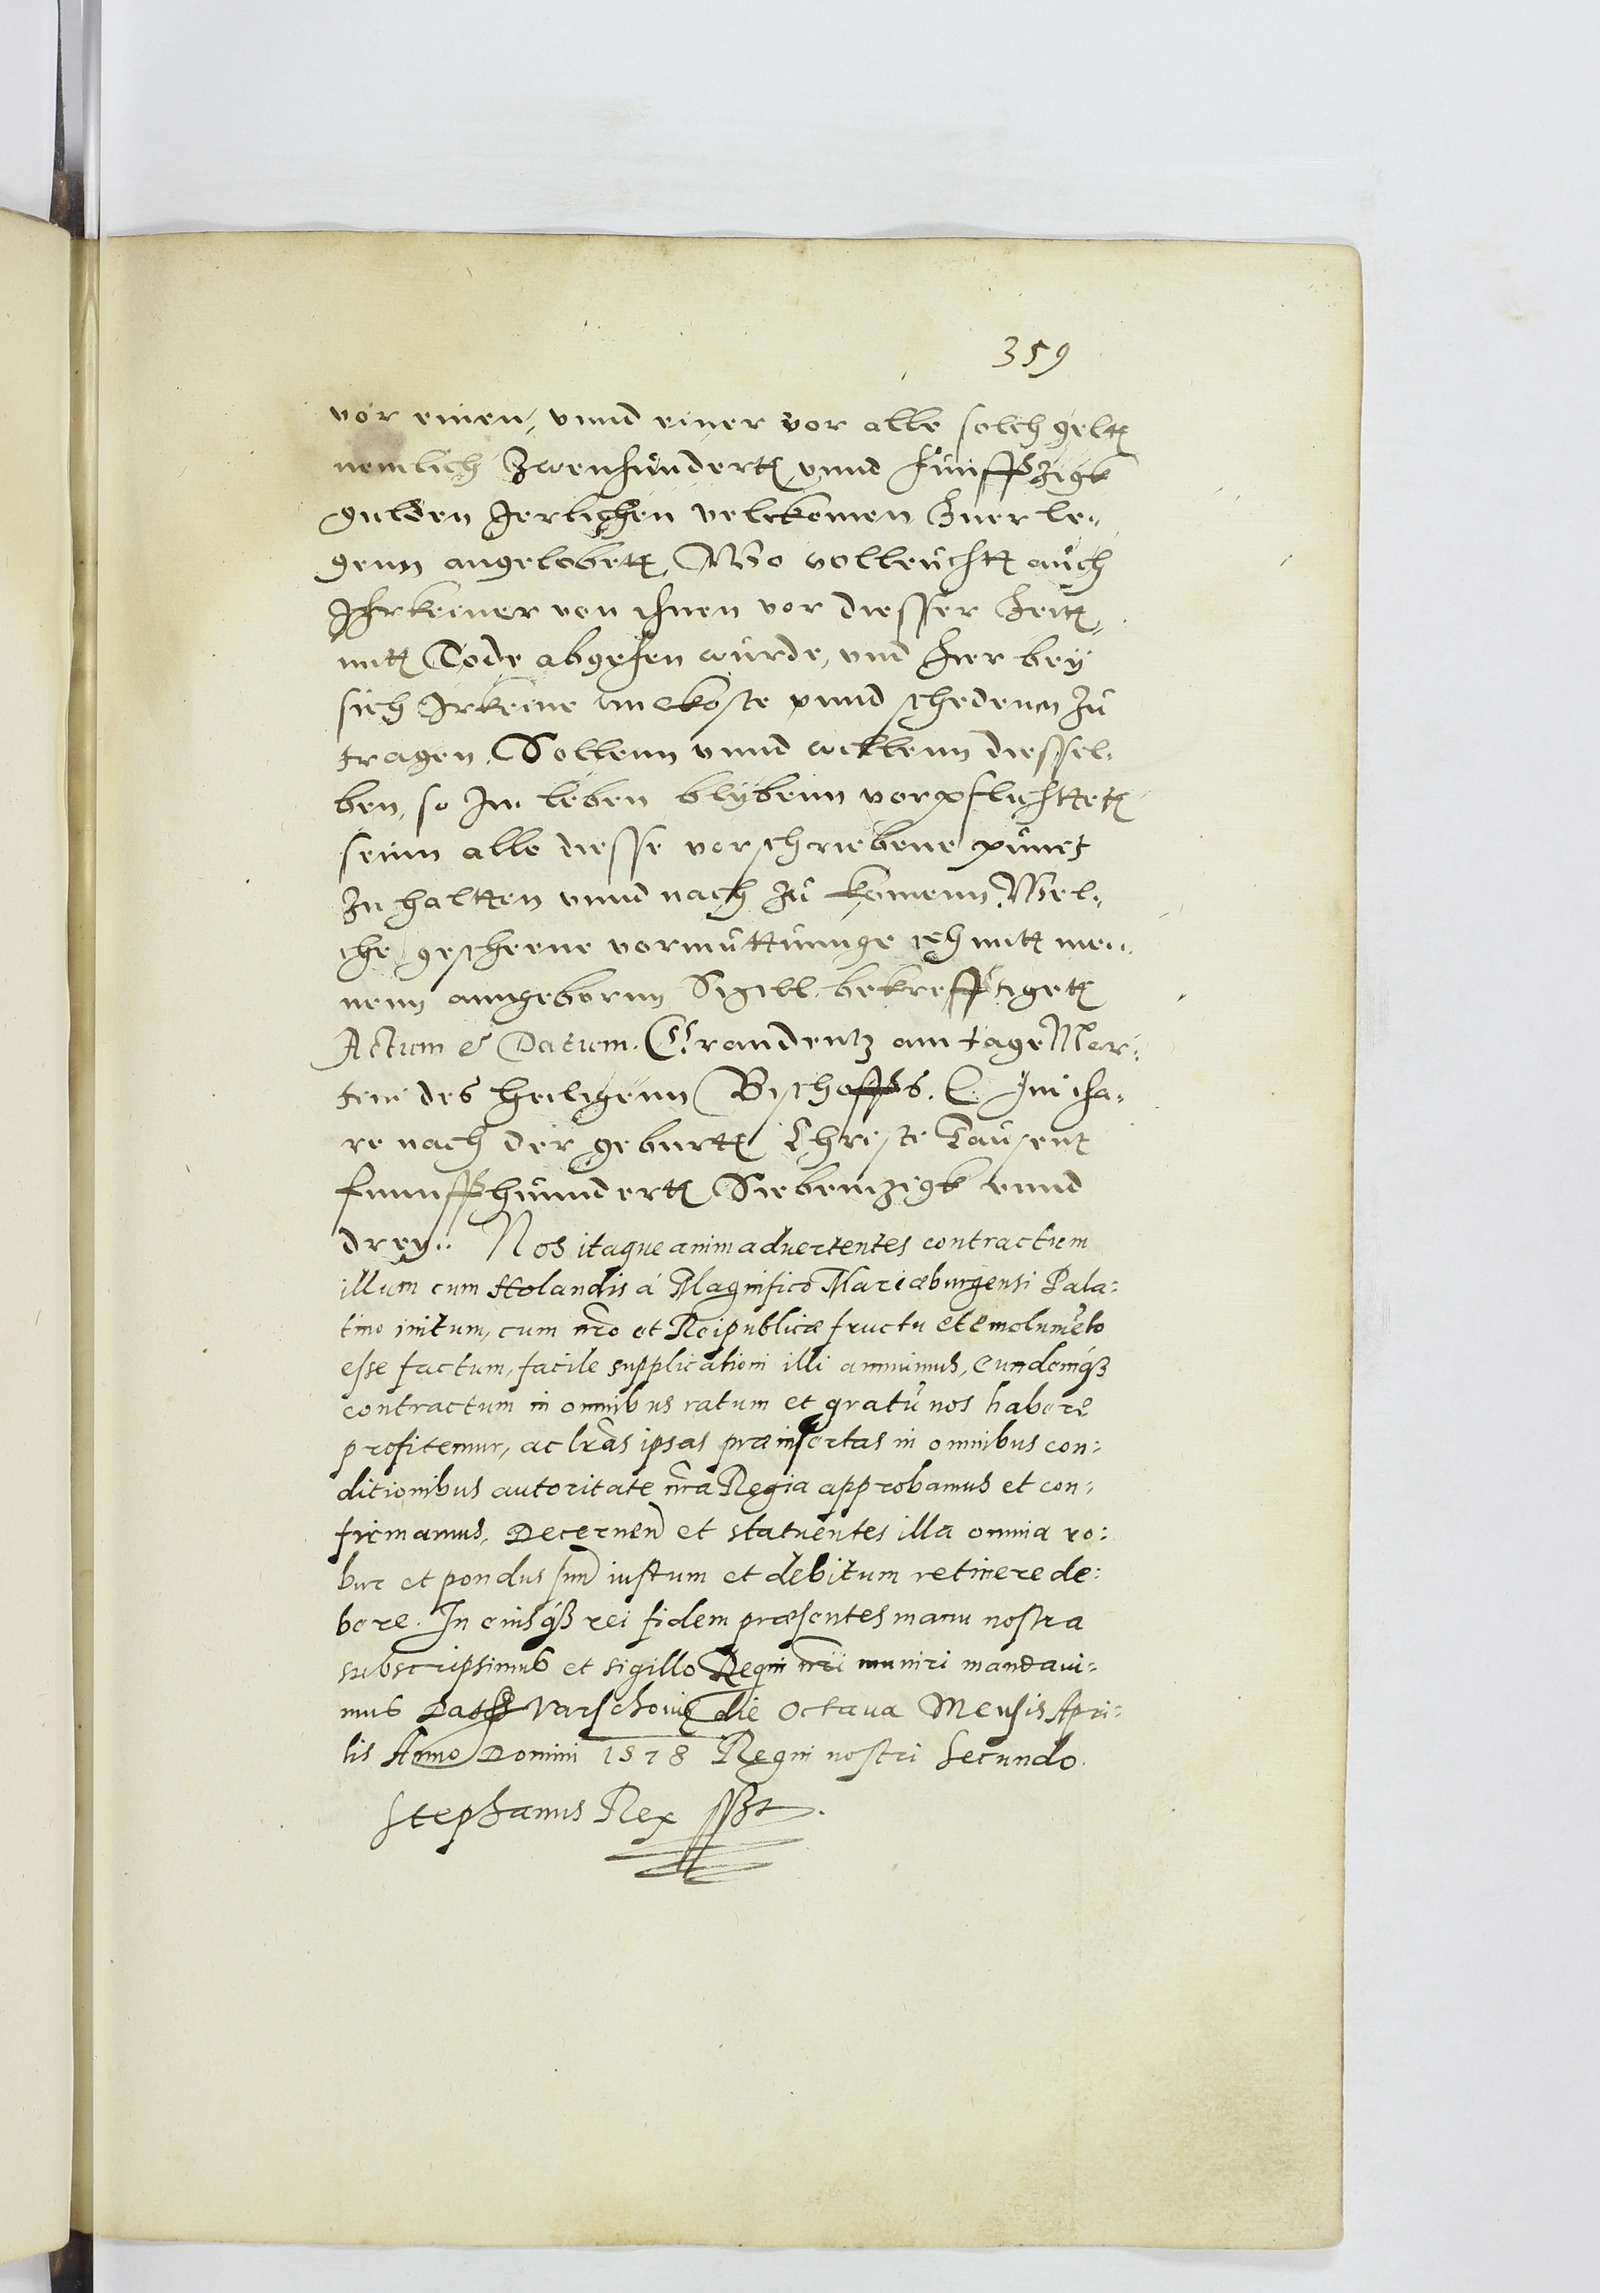 359
vor einen, vnnd einer vor alle solch gelt
nemlich Zwenhundert vnnd Funffzigk
gulden Jerlichen volkomen Zuerle-
genn angelobett, Wo volleucht auch
Ihrkeiner von ihnen vor diesser Zeitt
mit Tode abgehen wurde, vnd hier bey
sich Irkeine vnckoste vnnd schedenn zu
tragen, Sollenn vnnd wellenn diessel-
ben, so Im leben blybenn vorpflichttet
seinn alle diesse vorschriebene punct
Zu haltten vnnd nach zu komenn, Wel-
che gescheene vormuttunge ich mitt mei-
nenn anngebornn Sigill bekrefftigett
Actum & Datum Graudentz am tage Mar-
tini des heiligenn Bischoffs. Im iha-
re nach der geburtt Christi Tausent
funffhunndertt Siebenzigk vnnd
drey. Nos itaque animaduertentes contractum
illum cum Holandis á Magnifico Mariæburgensi Pala-
tino initum, cum nr̃o et Reipublicæ fructu et emolumẽto
esse factum, facile supplicationi illi annuimus, eundemq́ꝫ
contractum in omnibus ratum et gratũ nos habere
profitemur, ac lr̃as ipsas præinsertas in omnibus con-
ditionibus autoritate nr̃a Regia approbamus et con-
firmamus, Decernen̄ et statuentes illa omnia ro-
bur et pondus suũ iustum et debitum retinere de-
bere. In cuiusq́ꝫ rei fidem præsentes manu nostra
subscripsimus et sigillo Regni nr̃i muniri mandaui-
mus Dat Varschouiæ die Octaua Mensis Apri-
lis Anno Domini 1578 Regni nostri Secundo.
Stephanus Rex sst.